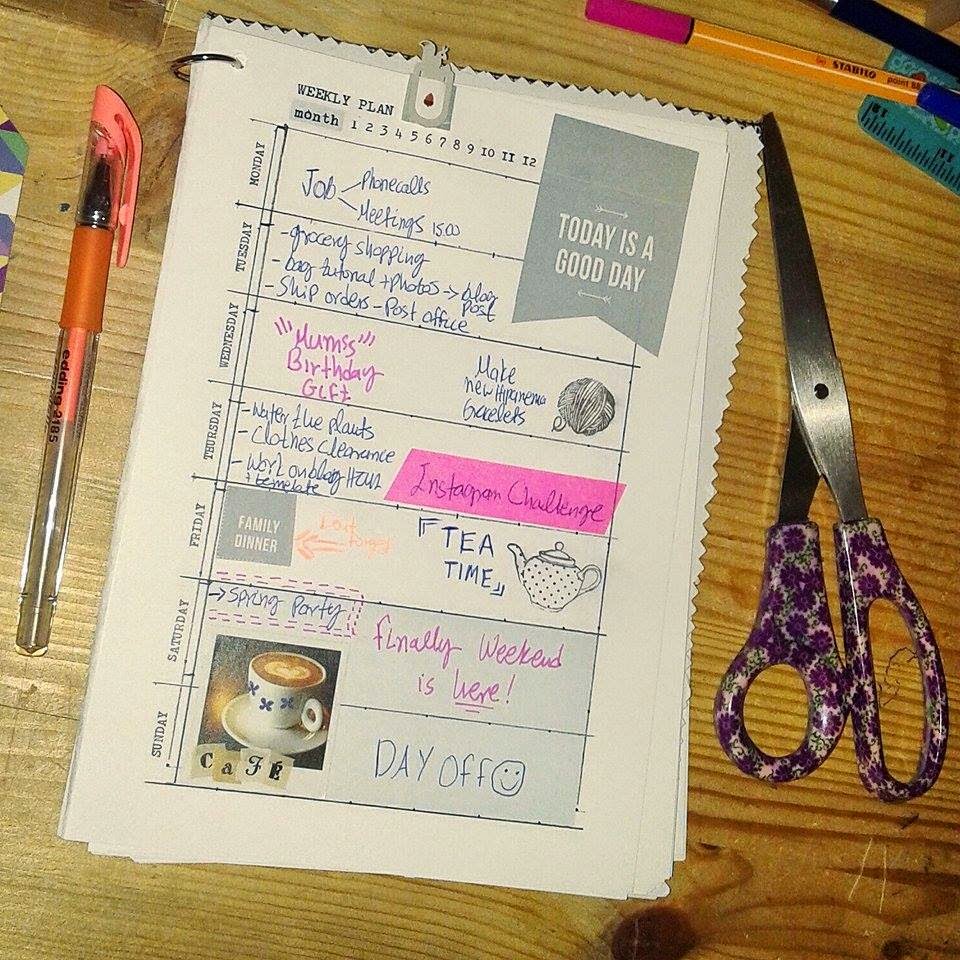 WEEKLY PLAN
month 1 2 3 4 5 6 7 8 9 10 11 12
TODAY IS A
GOOD DAY
MONDAY
Job
Phonecalls
Meetings 15:00
TUESDAY
-grocery shopping
-bag tutorial + Photos → blog
post
-Ship orders - Post office
WEDNESDAY
"Mumss"
Birthday
Gift
Make
new Hipanema
bracelets
THURSDAY
-Water the plants
-Clothes Clearance
-Work on blog
+ template
Instagram Challenge
FRIDAY
FAMILY
DINNER
Don't
forget
TEA
TIME
SATURDAY
→ Spring Party
Finally Weekend
is here!
SUNDAY
CaFÉ
DAY OFF
edding 2185
STABILO point 88